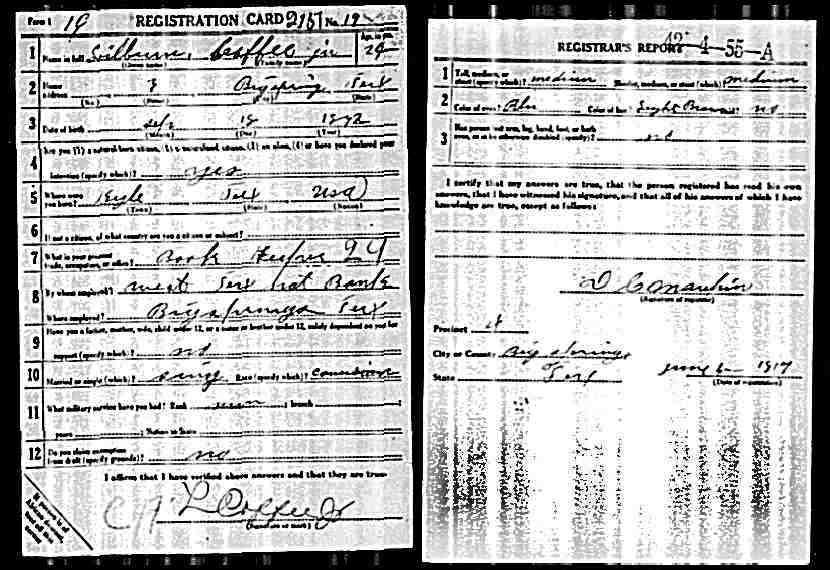 Form 1 REGISTRATION CARD No. 19
Age, in yrs.
1 Name in full Jr 24
(Given name) (Family name)
2 Home address Bigspring Tex
(No.) (Street) (City) (State)
3 Date of birth 19 1892
(Month) (Day) (Year)
4 Are you (1) a natural-born citizen, (2) a naturalized citizen, (3) an alien, (4) or have you declared your
intention (specify which)? yes
5 Where were you born? Kyle Tex USA
(Town) (State) (Nation)
6 If not a citizen, of what country are you a citizen or subject?
7 What is your present trade, occupation, or office? Book Keeper 24
8 By whom employed? West Tex Nat Bank
Where employed? Bigsprings Tex
9 Have you a father, mother, wife, child under 12, or a sister or brother under 12, solely dependent on you for
support (specify which)? no
10 Married or single (which)? Race (specify which)?
11 What military service have you had? Rank ; branch ;
years ; Nation or State
12 Do you claim exemption from draft (specify grounds)? no
I affirm that I have verified above answers and that they are true.
L Coffee Jr
(Signature or mark)
If person is of African descent, tear off this corner
REGISTRAR'S REPORT 42-4-55-A
1 Tall, medium, or short (specify which)? medium Slender, medium, or stout (which)? medium
2 Color of eyes? Blu Color of hair? Light Brown Bald? no
3 Has person lost arm, leg, hand, foot, or both eyes, or is he otherwise disabled (specify)? no
I certify that my answers are true, that the person registered has read his own
answers, that I have witnessed his signature, and that all of his answers of which I have
knowledge are true, except as follows:
(Signature of registrar)
Precinct 4
City or County Big Springs
State Tex June 1917
(Date of registration)